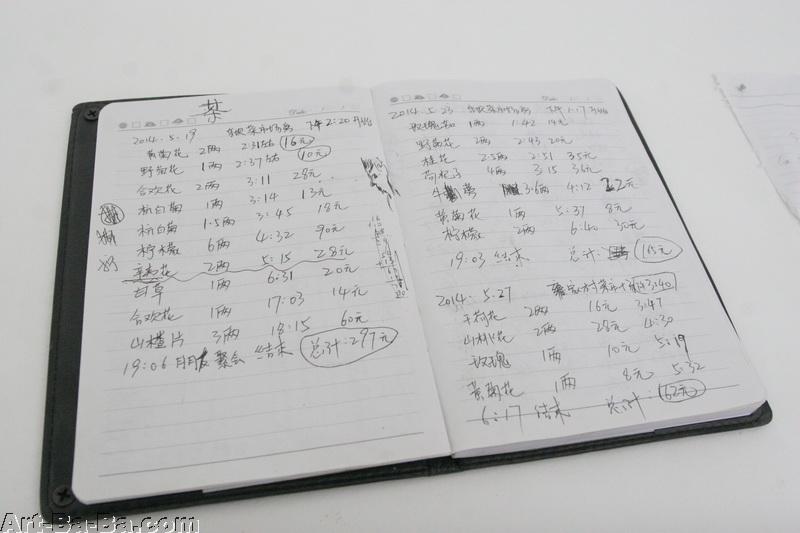 茶
2014.5.19 下午2:20开始
黄菊花 2两 2:31左右 16元
野菊花 1两 2:37左右 10元
合欢花 2两 3:11 28元
杭白菊 1两 3:14 13元
杭白菊 1.5两 3:45 18元
柠檬 6两 4:32 90元
花 2两 5:15 28元
甘草 1两 6:31 20元
合欢花 1两 17:03 14元
山楂片 3两 18:15 60元
19:06 朋友聚会 结束 总计:297元
2014.5.23 下午1:17开始
玫瑰茄 1两 1:42 14元
野菊花 2两 2:43 20元
桂花 2.5两 2:51 35元
枸杞子 4两 3:15 36元
牛蒡 3.6两 4:12 22元
黄菊花 1两 5:37 8元
柠檬 2两 6:40 30元
19:03 结束 总计: 165元
2014.5.27 3:40
2两 16元 3:47
花 2两 28元 4:30
玫瑰 1两 10元 5:19
黄菊花 1两 8元 5:32
6:17 结束 总计: 62元
Art-Ba-Ba.com